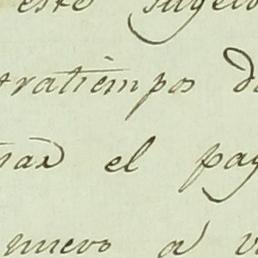 este sugeto
ratiempos d
rar el pag
nuevo a v